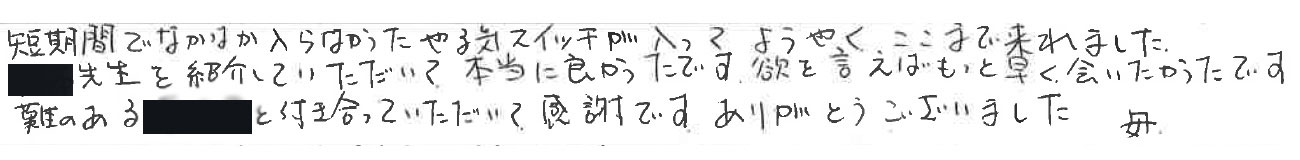 短期間でなかなか入らなかったやる気スイッチが入って ようやく ここまで来れました.
先生を紹介していただいて 本当に良かったです 欲を言えばもっと早く会いたかったです
難のある と付き合っていただいて 感謝です ありがとうございました 母